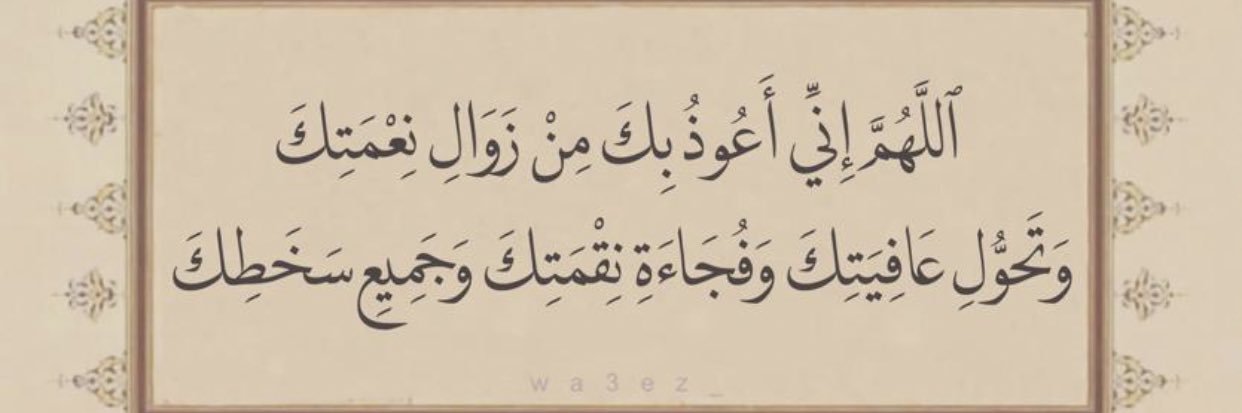 ٱللَّهُمَّ إِنِّي أَعُوذُ بِكَ مِنْ زَوَالِ نِعْمَتِكَ
وَتَحَوُّلِ عَافِيَتِكَ وَفُجَاءَةِ نِقْمَتِكَ وَجَمِيعِ سَخَطِكَ
wa3ez_